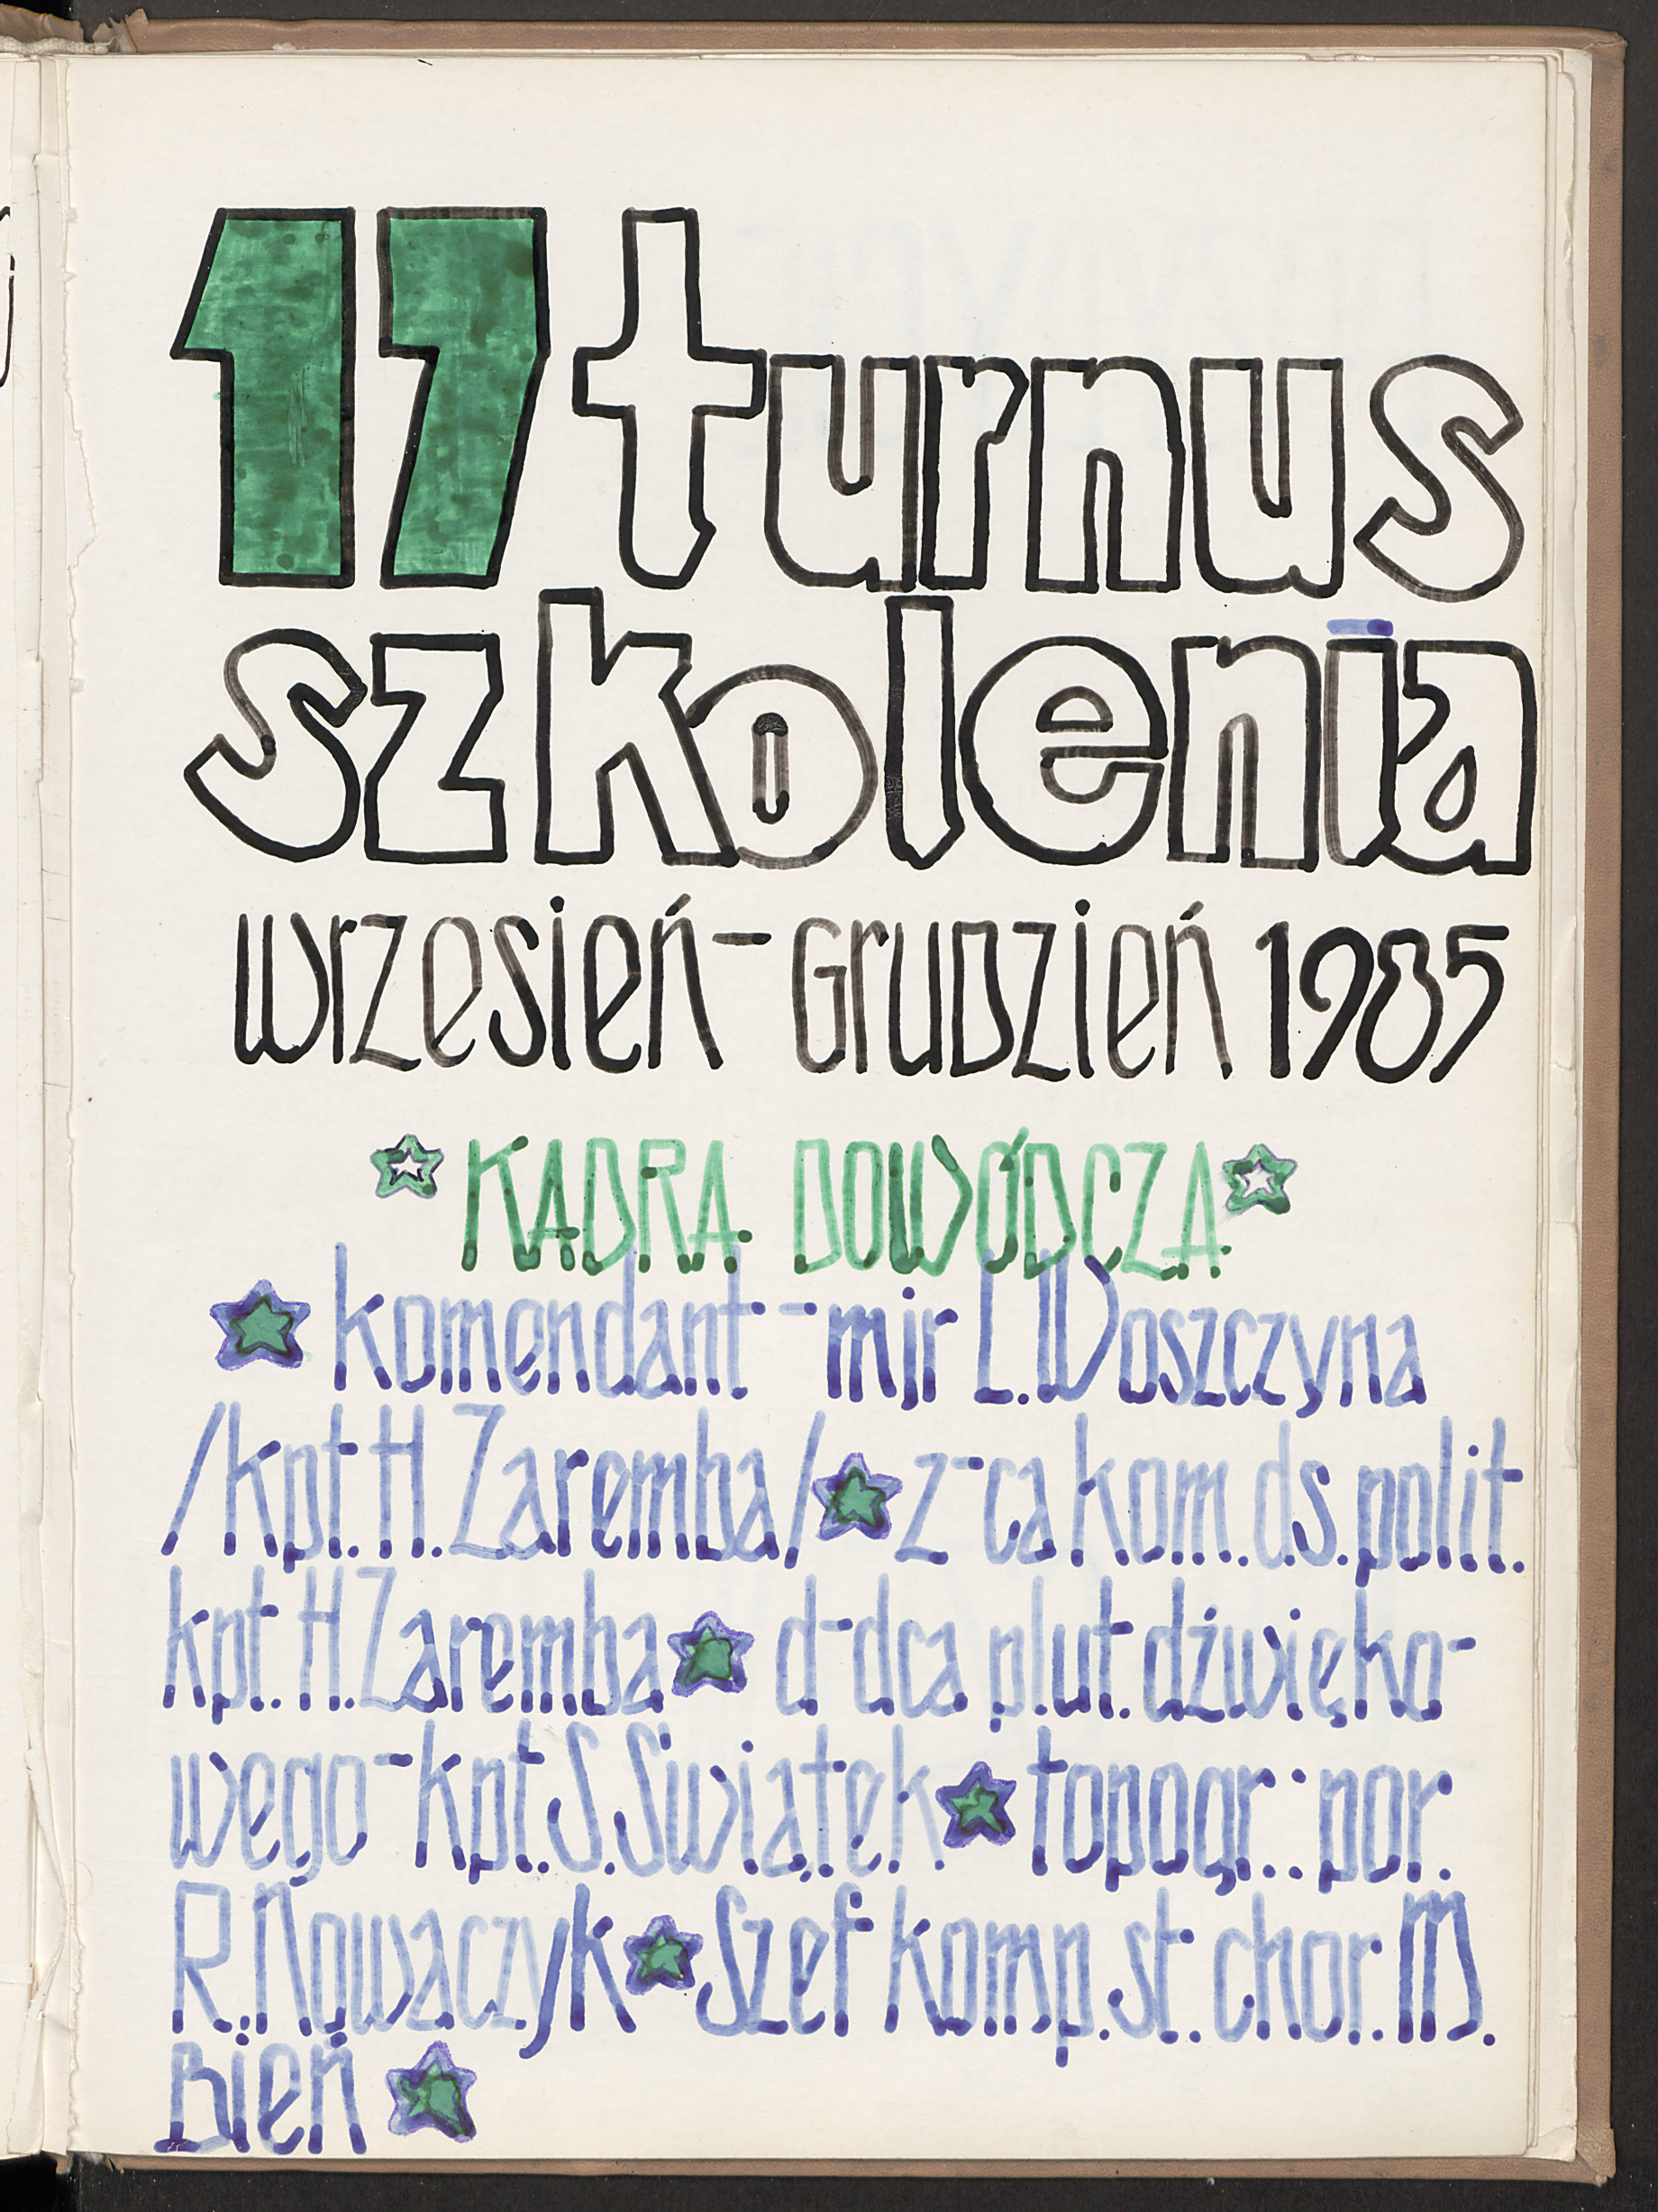 17 turnus
szkolenia
wrzesień - Grudzień 1985
KADRA DOWÓDCZA
komendant - mjr L. Woszczyna
/kpt. H. Zaremba/ z-ca kom. d.s. polit.
kpt. H. Zaremba d-dca plut. dźwięko-
wego - kpt. S. Świątek topogr.: por.
R. Nowaczyk Szef komp. st. chor. M.
Bień